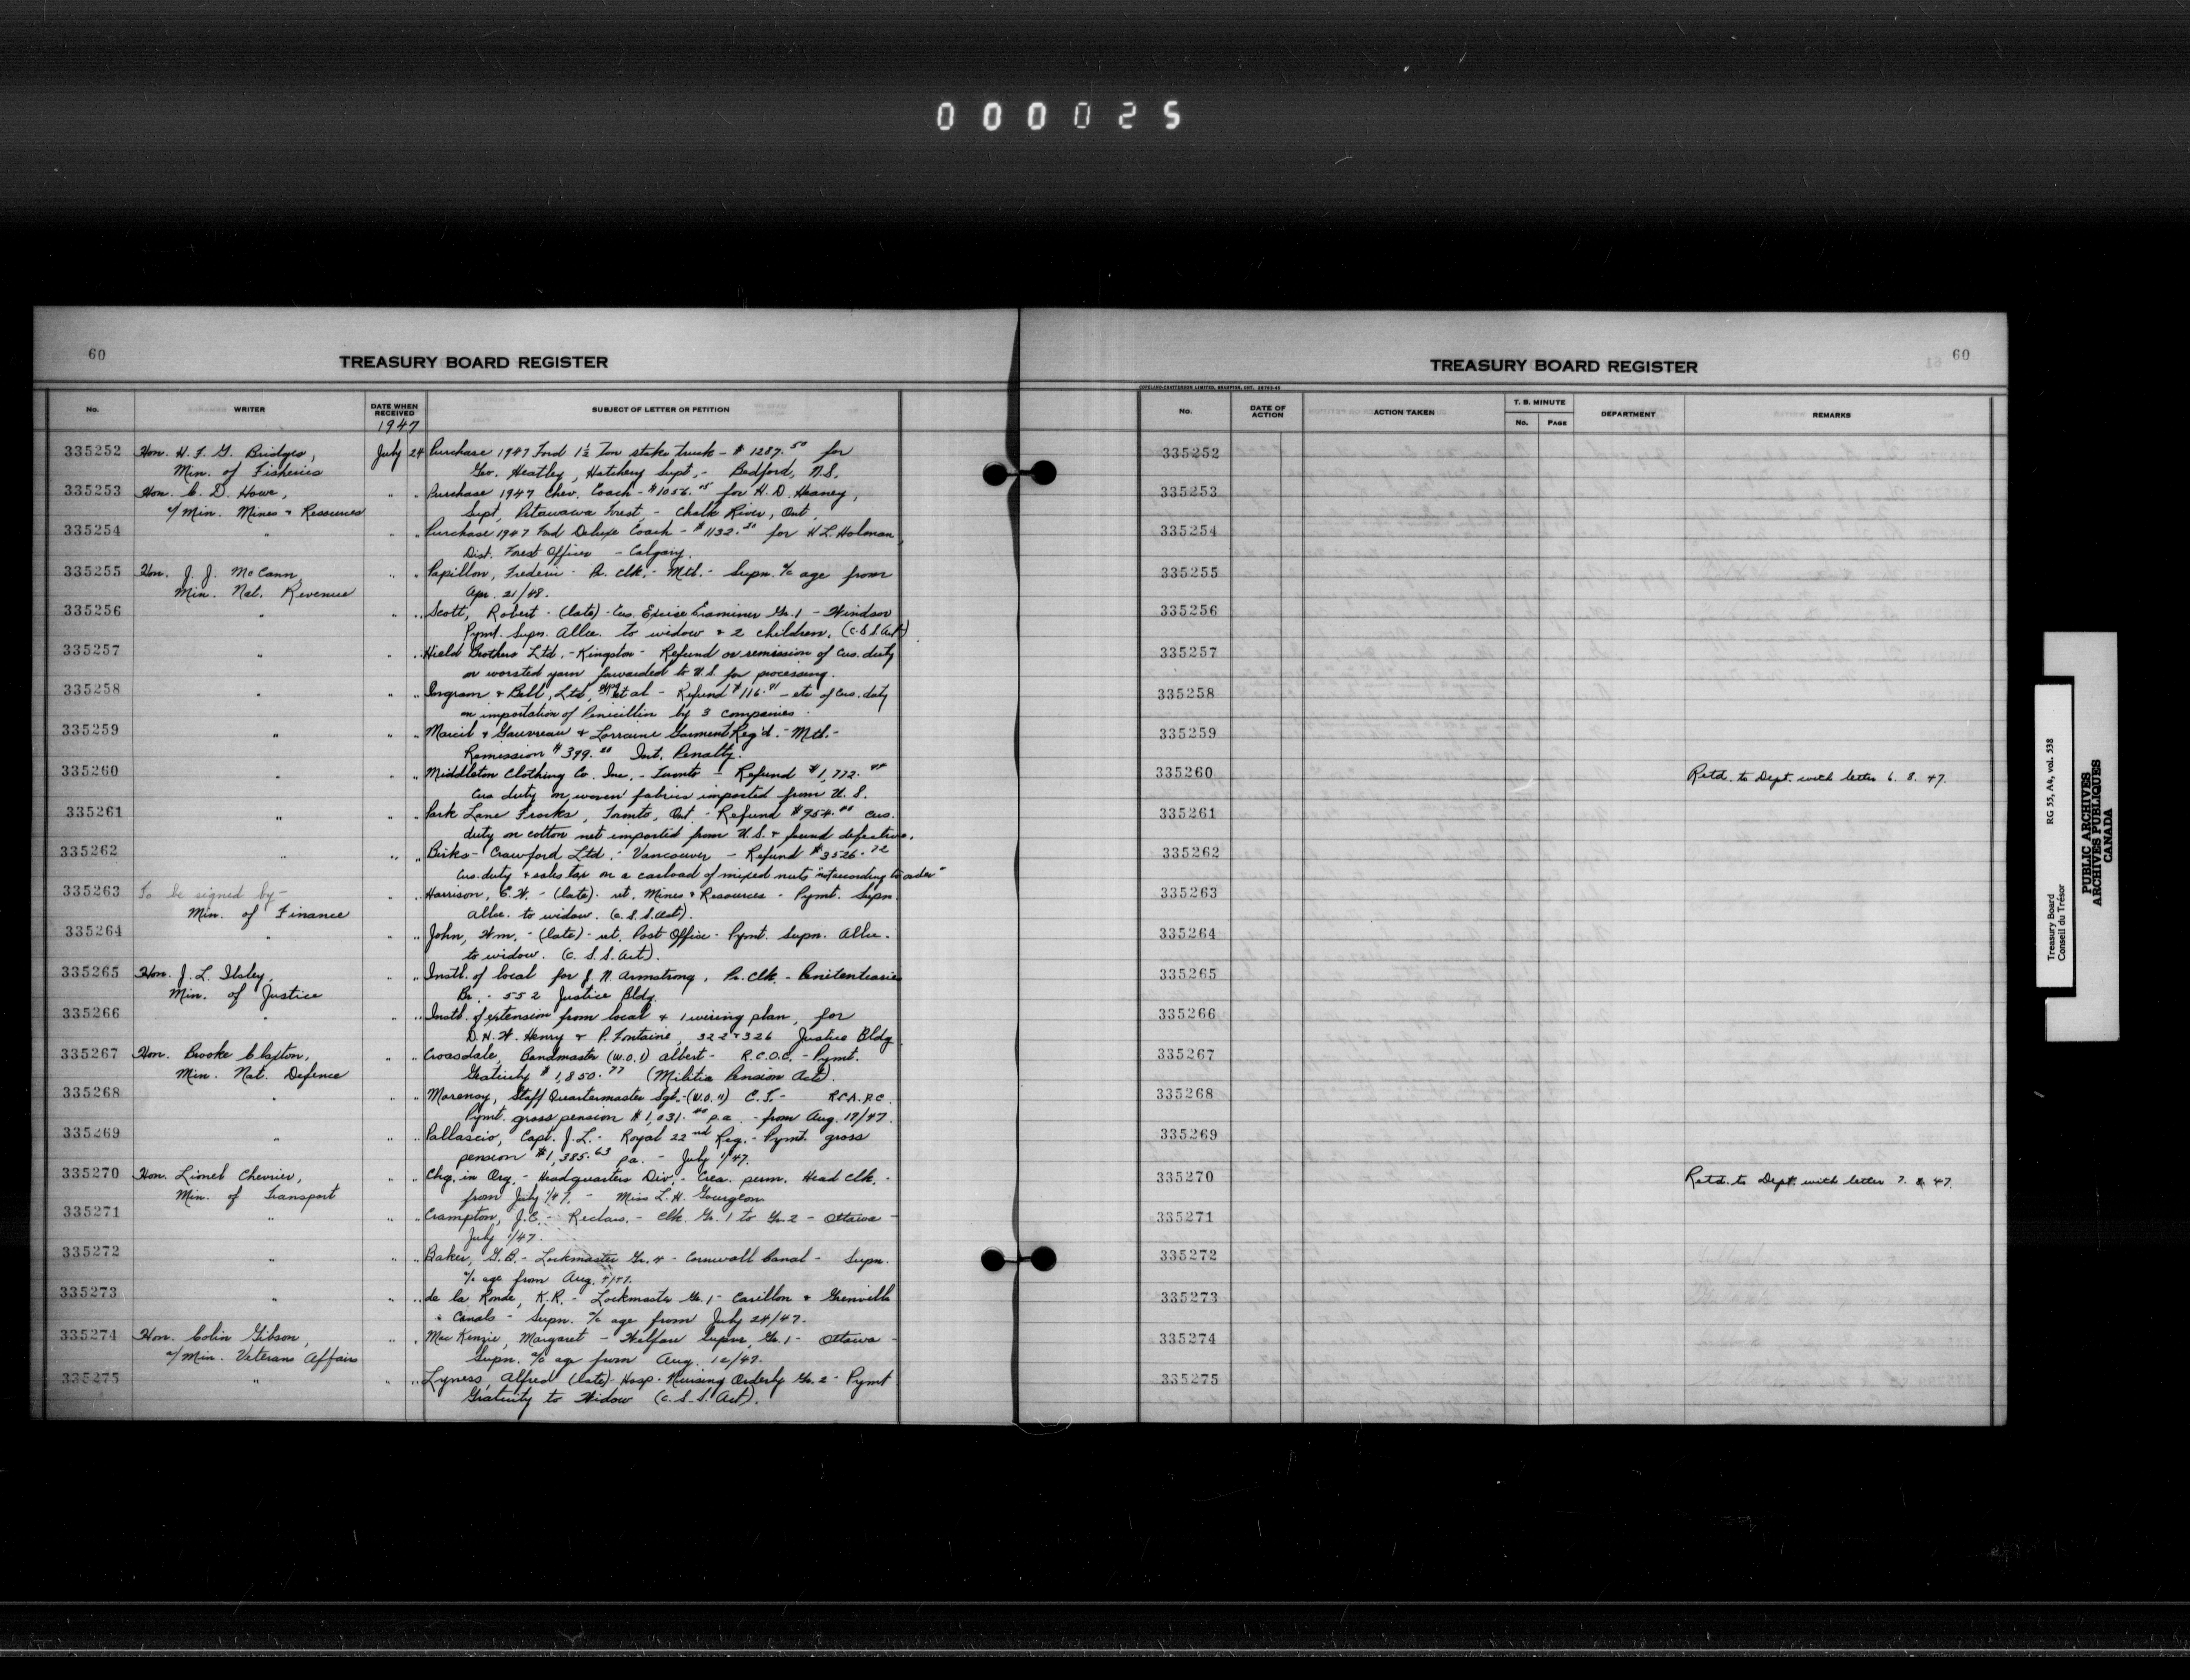 000025
60
TREASURY BOARD REGISTER
No. WRITER DATE WHEN RECEIVED SUBJECT OF LETTER OR PETITION
1947
335252 Hon. H. F. G. Bridges, July 24 Purchase 1947 Ford 1½ Ton stake truck - $1287.50 for
Min. of Fisheries Geo. Heatley, Hatchery Supt. - Bedford, N.S.
335253 Hon. C. D. Howe, " " Purchase 1947 Chev. Coach - $1056. for H. D. Heaney,
a/Min. Mines & Resources Supt. Petawawa Forest - Chalk River, Ont.
335254 " " " Purchase 1947 Ford Deluxe Coach - $1132.50 for H. L. Holman,
Dist. Forest Officer - Calgary.
335255 Hon. J. J. McCann, " " Papillon, Frederic - Pr. Clk. - Mtl. - Supn. a/c age from
Min. Nat. Revenue Apr. 21/48.
335256 " " " Scott, Robert - (late) - Cus. Excise Examiner Gr. 1 - Windsor
Pymt. Supn. Allce. to widow & 2 children. (C.S.S. Act)
335257 " " " Hield Brothers Ltd. - Kingston - Refund or remission of Cus. duty
on worsted yarn forwarded to U.S. for processing.
335258 " " " Ingram & Bell, Ltd. et al - Refund $116.91 - etc of Cus. duty
on importation of Penicillin by 3 companies.
335259 " " " Marcil & Gauvreau & Lorraine Garment Reg'd. - Mtl. -
Remission $399. Int. Penalty.
335260 " " " Middleton Clothing Co. Inc. - Toronto - Refund $1,772.
Cus duty on woven fabrics imported from U.S.
335261 " " " Park Lane Frocks, Toronto, Ont. - Refund $954. Cus.
duty on cotton net imported from U.S. & found defective.
335262 " " " Birks-Crawford Ltd. - Vancouver - Refund $3526.72
Cus. duty & sales tax on a carload of mixed nuts "not according to order"
335263 To be signed by - " " Harrison, E. W. - (late) - ret. Mines & Resources - Pymt. Supn.
Min. of Finance Allce. to widow. (C.S.S. Act).
335264 " " " John, Wm. - (late) - ret. Post Office - Pymt. Supn. Allce.
to widow. (C.S.S. Act).
335265 Hon. J. L. Ilsley, " " Instl. of local for J. N. Armstrong, Pr. Clk. - Penitentiaries
Min. of Justice Br. - 552 Justice Bldg.
335266 " " " Instl. of extension from local & 1 wiring plan, for
D. H. W. Henry & P. Fontaine, 322 & 326 Justice Bldg.
335267 Hon. Brooke Claxton, " " Croasdale, Bandmaster (W.O.1) Albert - R.C.O.C. - Pymt.
Min. Nat. Defence Gratuity $1,850.77 (Militia Pension Act).
335268 " " " Marenay, Staff Quartermaster Sgt. - (W.O. II) C. T. - R.C.A.P.C.
Pymt. gross pension $1,031. p.a. - from Aug. 17/47.
335269 " " " Pallascio, Capt. J. L. - Royal 22nd Reg. - Pymt. gross
pension $1,385.63 p.a. - July 1/47.
335270 Hon. Lionel Chevrier, " " Chg. in Org. - Headquarters Div. - Crea. perm. Head Clk. -
Min. of Transport from July 1/47. - Miss L. H. Gourgeon
335271 " " " Crampton, J. C. - Reclass. - Clk. Gr. 1 to Gr. 2 - Ottawa -
July 1/47.
335272 " " " Baker, G. B. - Lockmaster Gr. 4 - Cornwall Canal - Supn.
a/c age from Aug.
335273 " " " de la Ronde, K. R. - Lockmaster Gr. 1 - Carillon & Grenville
Canals - Supn. a/c age from July 24/47.
335274 Hon. Colin Gibson, " " MacKenzie, Margaret - Welfare Supvr. Gr. 1 - Ottawa -
a/Min. Veterans Affairs Supn. a/c age from Aug. 12/47.
335275 " " " Lyness, Alfred (late) - Hosp. Nursing Orderly Gr. 2 - Pymt
Gratuity to Widow (C.S.S. Act).
60
TREASURY BOARD REGISTER
COPELAND-CHATTERSON LIMITED, BRAMPTON, ONT.
No. DATE OF ACTION ACTION TAKEN T. B. MINUTE No. PAGE DEPARTMENT REMARKS
335252
335253
335254
335255
335256
335257
335258
335259
335260 Retd. to Dept. with letter 6. 8. 47.
335261
335262
335263
335264
335265
335266
335267
335268
335269
335270 Retd. to Dept. with letter 7. 8. 47.
335271
335272
335273
335274
335275
Treasury Board RG 55, A4, vol. 538
Conseil du Trésor
PUBLIC ARCHIVES
ARCHIVES PUBLIQUES
CANADA